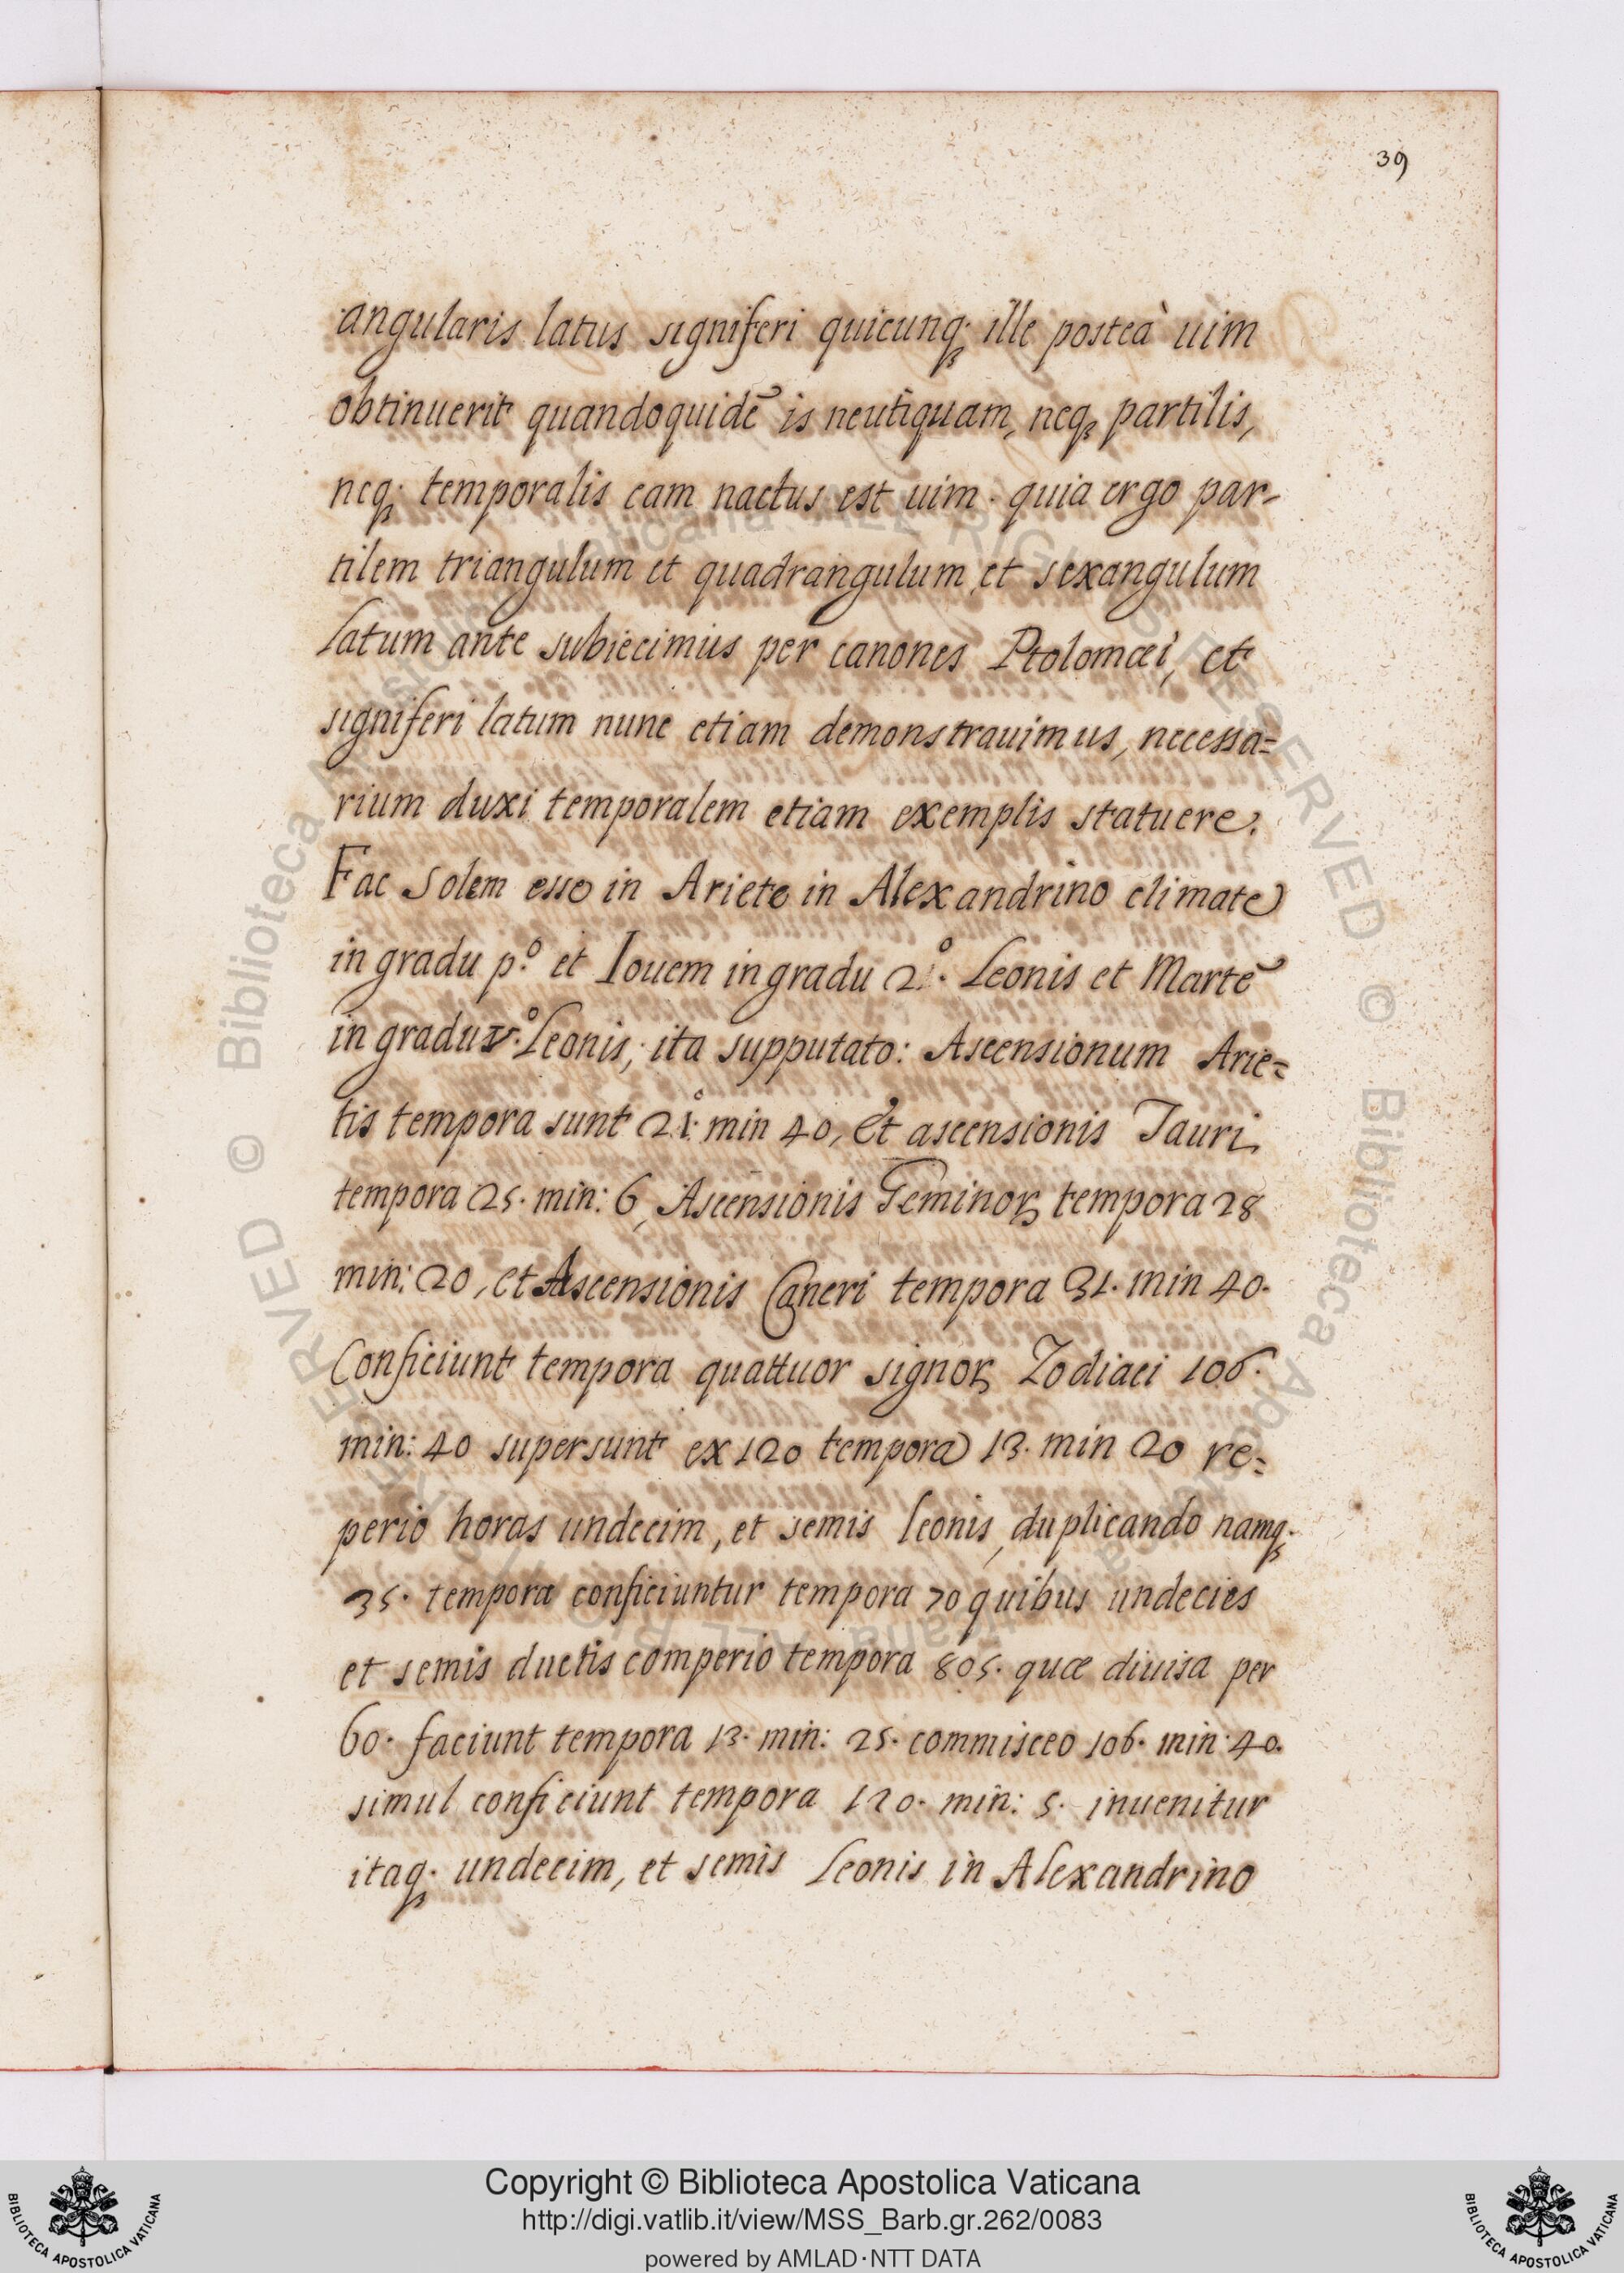 39
angularis latus signiferi quicunq; ille posteà uim
obtinuerit quandoquidẽ is neutiquam, neq; partilis,
neq; temporalis eam nactus est uim. quia ergo par-
tilem triangulum et quadrangulum et sexangulum
latum ante subiecimus per canones Ptolomæi, et
signiferi latum nunc etiam demonstrauimus, necessa=
rium duxi temporalem etiam exemplis statuere.
Fac Solem esse in Ariete in Alexandrino climate
in gradu p.º et Iouem in gradu 21º. Leonis et Martẽ
in gradu Leonis, ita supputato: Ascensionum Arie=
tis tempora sunt 21. min 40, et ascensionis Tauri
tempora 25. min: 6, Ascensionis Geminoꝝ tempora 28
min: 20, et Ascensionis Cancri tempora 31. min 40.
Conficiunt tempora quattuor signoꝝ Zodiaci 106.
min: 40 supersunt ex 120 tempora 13. min 20 re=
perio horas undecim, et semis leonis, duplicando namq;
35. tempora conficiuntur tempora 70 quibus undecies
et semis ductis comperio tempora 805. quæ diuisa per
60. faciunt tempora 13. min: 25. commisceo 106. min 40.
simul conficiunt tempora 120. min: 5. inuenitur
itaq; undecim, et semis Leonis in Alexandrino
Copyright © Biblioteca Apostolica Vaticana
http://digi.vatlib.it/view/MSS_Barb.gr.262/0083
powered by AMLAD·NTT DATA
BIBLIOTECA APOSTOLICA VATICANA
BIBLIOTECA APOSTOLICA VATICANA